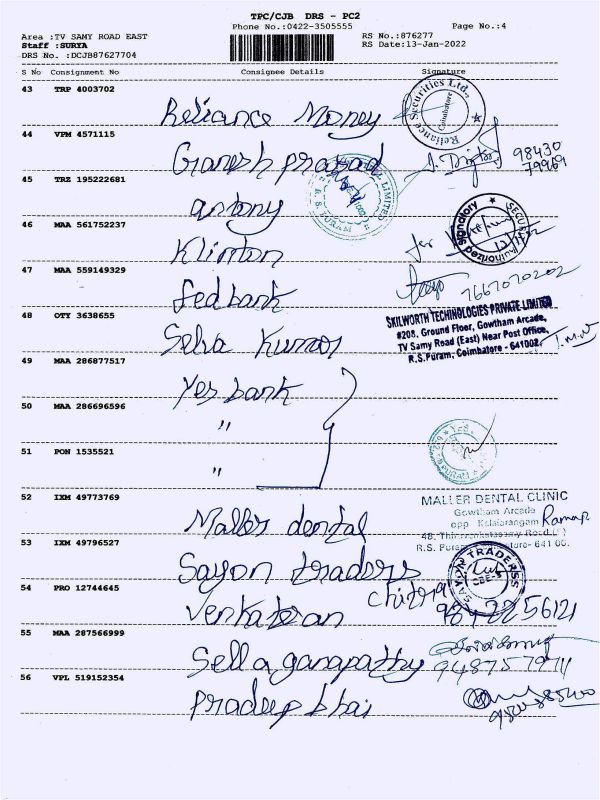 TPC/CJB DRS - PC2
Phone No.:0422-3505555
Page No.:4
Area :TV SAMY ROAD EAST
RS No.:876277
Staff :SURYA
RS Date:13-Jan-2022
DRS No. :DCJB87627704
S No Consignment No Consignee Details Signature
43 TRP 4003702
Reliance Money
Reliance Securities Ltd.,
Coimbatore
44 VPM 4571115
Ganesh prasad
98430
45 TRZ 195222681
antony
LIMITED
R.S. PURAM
46 MAA 561752237
Klinton
Authorized Signatory
47 MAA 559149329
fedbank
7667070202
48 OTY 3638655
Selva Kumar
SKILWORTH TECHNOLOGIES PRIVATE LIMITED
#208, Ground Floor, Gowtham Arcade,
TV Samy Road (East) Near Post Office,
R.S.Puram, Coimbatore - 641002.
49 MAA 286877517
Yes bank
50 MAA 286696596
"
51 PON 1535521
"
52 IXM 49773769
Maller dental
MALLER DENTAL CLINIC
Gowtham Arcade
opp Kalaiarangam
R.S. Puram
53 IXM 49796527
Sayon traders
SAYON TRADERSS
CBE-2
54 PRO 12744645
Venkateran
Chitra
9842256121
55 MAA 287566999
Sella ganapathy
56 VPL 519152354
Pradeep bhai